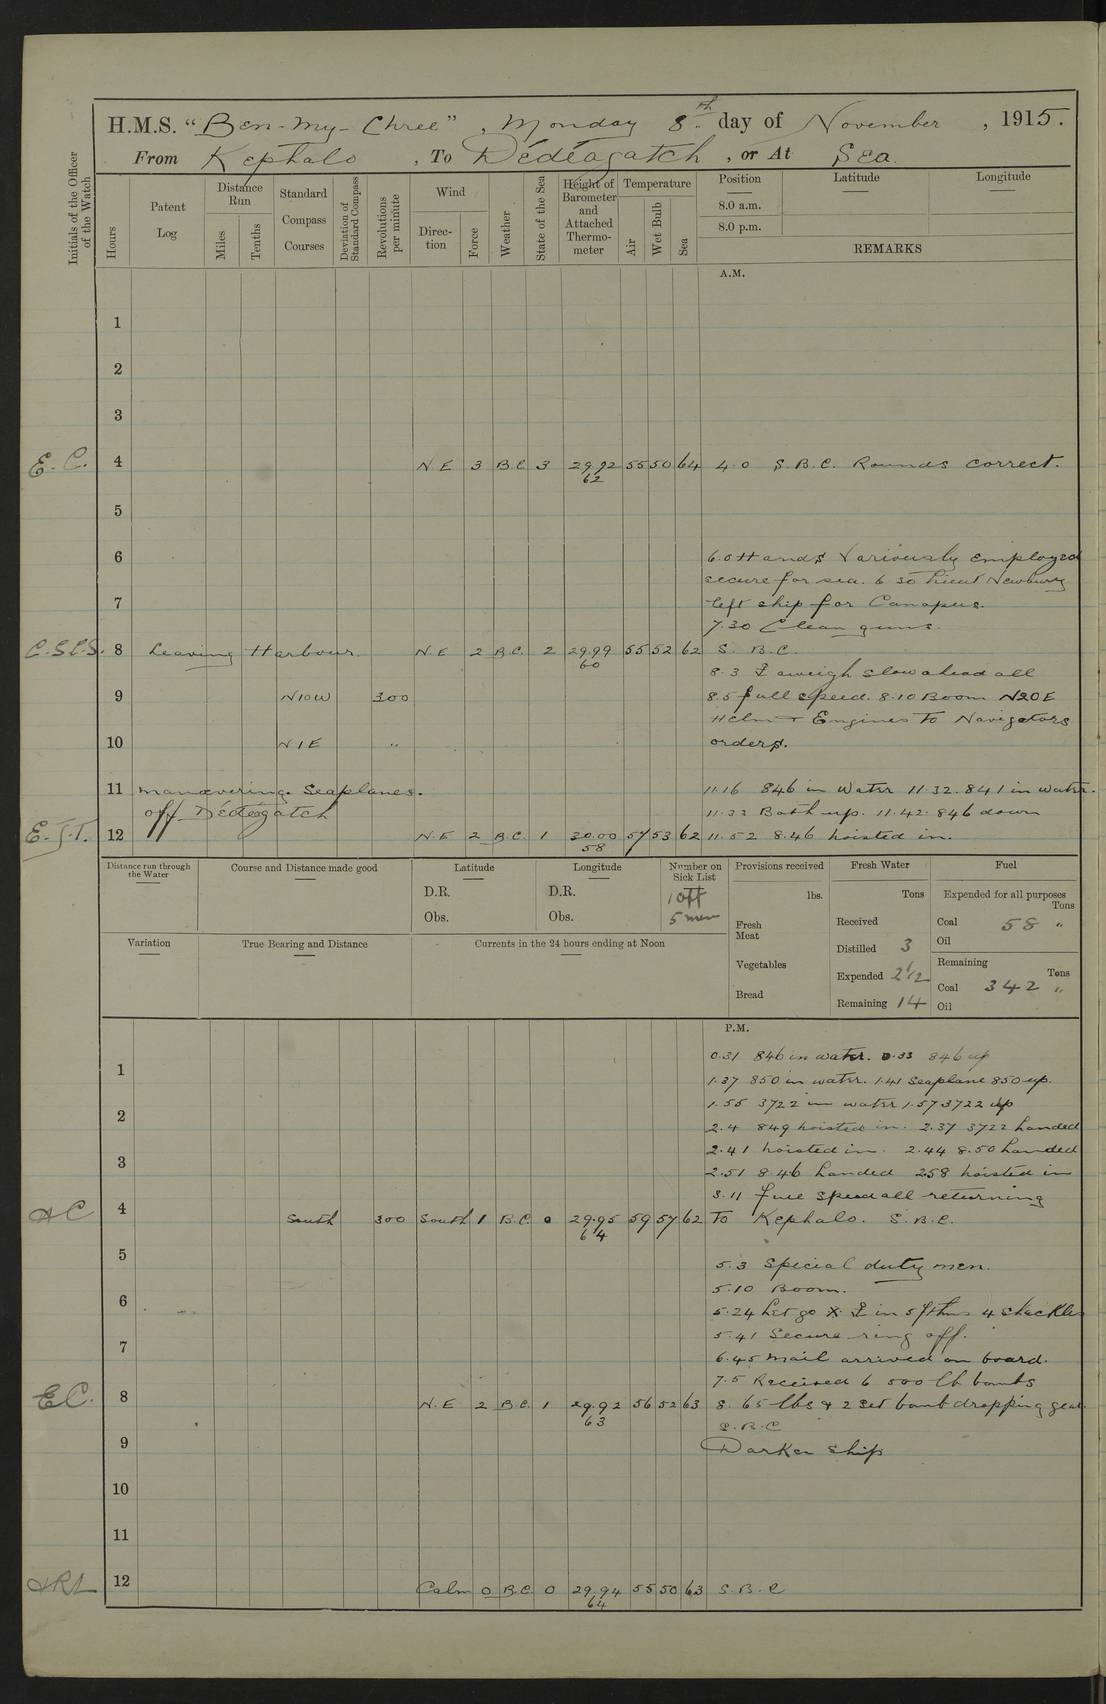 H.M.S. "Ben-my-Chree", Monday 8th day of November, 1915.
From Kephalo, To Dédéagatch, or At Sea.
Initials of the Officer of the Watch
Hours
Patent Log
Distance Run
Miles
Tenths
Standard Compass Courses
Deviation of Standard Compass
Revolutions per minute
Wind
Direction
Force
Weather
State of the Sea
Height of Barometer and Attached Thermometer
Temperature
Air
Wet Bulb
Sea
Position
8.0 a.m.
8.0 p.m.
Latitude
Longitude
REMARKS
A.M.
1
2
3
E.C. 4 N.E 3 B.C 3 29.92 55 50 64 4.0 S.B.C. Rounds correct.
62
5
6 6.0 Hands Variously employed
secure for sea. 6.30 Lieut Newbury
7 left ship for Canopus.
7.30 Clean guns.
C.S.L.S. 8 Leaving Harbour. N.E 2 B.C. 2 29.99 55 52 62 S.B.C.
60
8.3 aweigh slow ahead all
9 N10W 300 8.5 full speed. 8.10 Boom N20E
Helm + Engines To Navigators
10 N1E " orders.
11 manœvering. Seaplanes. 11.16 846 in water 11.32. 841 in water.
off Dédéagatch 11.33 Both up. 11.42. 846 down
E.J.T. 12 N.E 2 B.C. 1 30.00 57 53 62 11.52 8.46 hoisted in.
58
Distance run through the Water
Course and Distance made good
Latitude
D.R.
Obs.
Longitude
D.R.
Obs.
Number on Sick List
1 off
5 men
Provisions received
lbs.
Fresh Meat
Vegetables
Bread
Fresh Water
Tons
Received
Distilled 3
Expended 2 1/2
Remaining 14
Fuel
Expended for all purposes
Tons
Coal 58 "
Oil
Remaining
Tons
Coal 342 "
Oil
Variation
True Bearing and Distance
Currents in the 24 hours ending at Noon
P.M.
0.31 846 in water. 0.33 846 up
1 1.37 850 in water. 1.41 Seaplane 850 up.
2 1.55 3722 in water 1.57 3722 up
2.4 849 hoisted in. 2.37 3722 landed
3 2.41 hoisted in. 2.44 8.50 landed
2.51 8.46 landed 2.58 hoisted in
4 3.11 full speed all returning
AC South 300 South 1 B.C. 0 29.95 59 57 62 To Kephalo. S.B.C.
64
5 5.3 Special duty men.
5.10 Boom.
6 5.24 Let go in 5 fthms 4 shackles
5.41 Secure ring off.
7 6.45 mail arrived on board.
7.5 Received 6 500 lb bombs
E.C. 8 N.E 2 B.C. 1 29.92 56 52 63 8. 65 lbs + 2 set bomb dropping gear.
63 S.B.C
9 Darken ship
10
11
12 Calm 0 B.C. 0 29.94 55 50 63 S.B.C
64